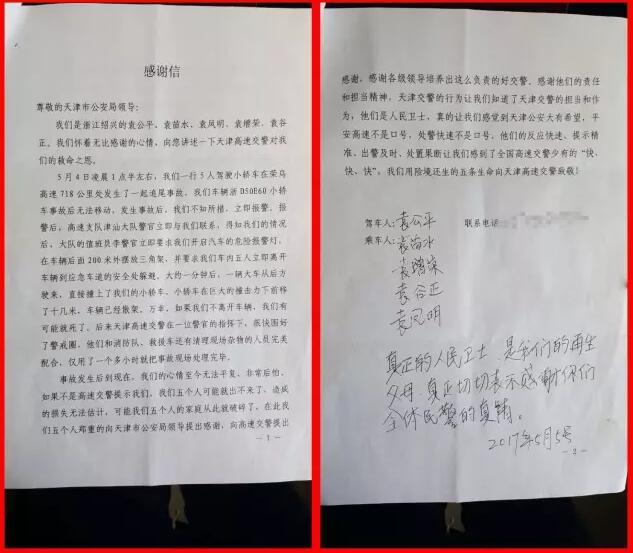 感谢信
尊敬的天津市公安局领导：
我们是浙江绍兴的袁公平、袁苗水、袁凤明、袁增荣、袁谷
正。我们怀着无比感谢的心情，向您讲述一下天津高速交警对我
们的救命之恩。
5月4日凌晨1点半左右，我们一行5人驾驶小轿车在荣乌
高速718公里处发生了一起追尾事故，我们车辆浙D50E60小轿
车事故后无法移动，发生事故后，我们不知所措，立即报警，报
警后，高速支队津汕大队警官立即与我们联系，得知我们的情况
后，大队的值班员李警官立即要求我们开启汽车的危险报警灯，
在车辆后面200米外摆放三角架，并要求我们车内五人立即离开
车辆到应急车道的安全处躲避。大约一分钟后，一辆大车从后方
驶来，直接撞上了我们的小轿车，小轿车在巨大的撞击力下前移
了十几米，车辆已经散架，万幸，如果我们不离开车辆，我们有
可能就死了。后来天津高速交警在一位警官的指挥下，很快围好
了警戒圈，他们和消防队、救援车还有清理现场杂物的人员完美
配合，仅用了一个多小时就把事故现场处理完毕。
事故发生后到现在，我们的心情至今无法平复，非常后怕，
如果不是高速交警提示我们，我们五个人可能就出不来了，造成
的损失无法估计，可能我们五个人的家庭从此就破碎了，在此我
们五个人郑重的向天津市公安局领导提出感谢，向高速交警提出
－1－
感谢，感谢各级领导培养出这么负责的好交警。感谢他们的责任
和担当精神，天津交警的行为让我们知道了天津交警的担当和作
为，他们是人民卫士，真的让我们感觉到天津公安大有希望，平
安高速不是口号，处警快速不是口号，他们的反应快速、提示精
准、出警及时、处置果断让我们感到了全国高速交警少有的“快、
快、快”，我们用险境还生的五条生命向天津高速交警致敬！
驾车人：袁公平 联系电话
乘车人：袁苗水
袁增荣
袁谷正
袁凤明
真正的人民卫士，是我们的再生
父母，真正切切表示感谢你们
全体民警的真情。
2017年5月5号
－2－